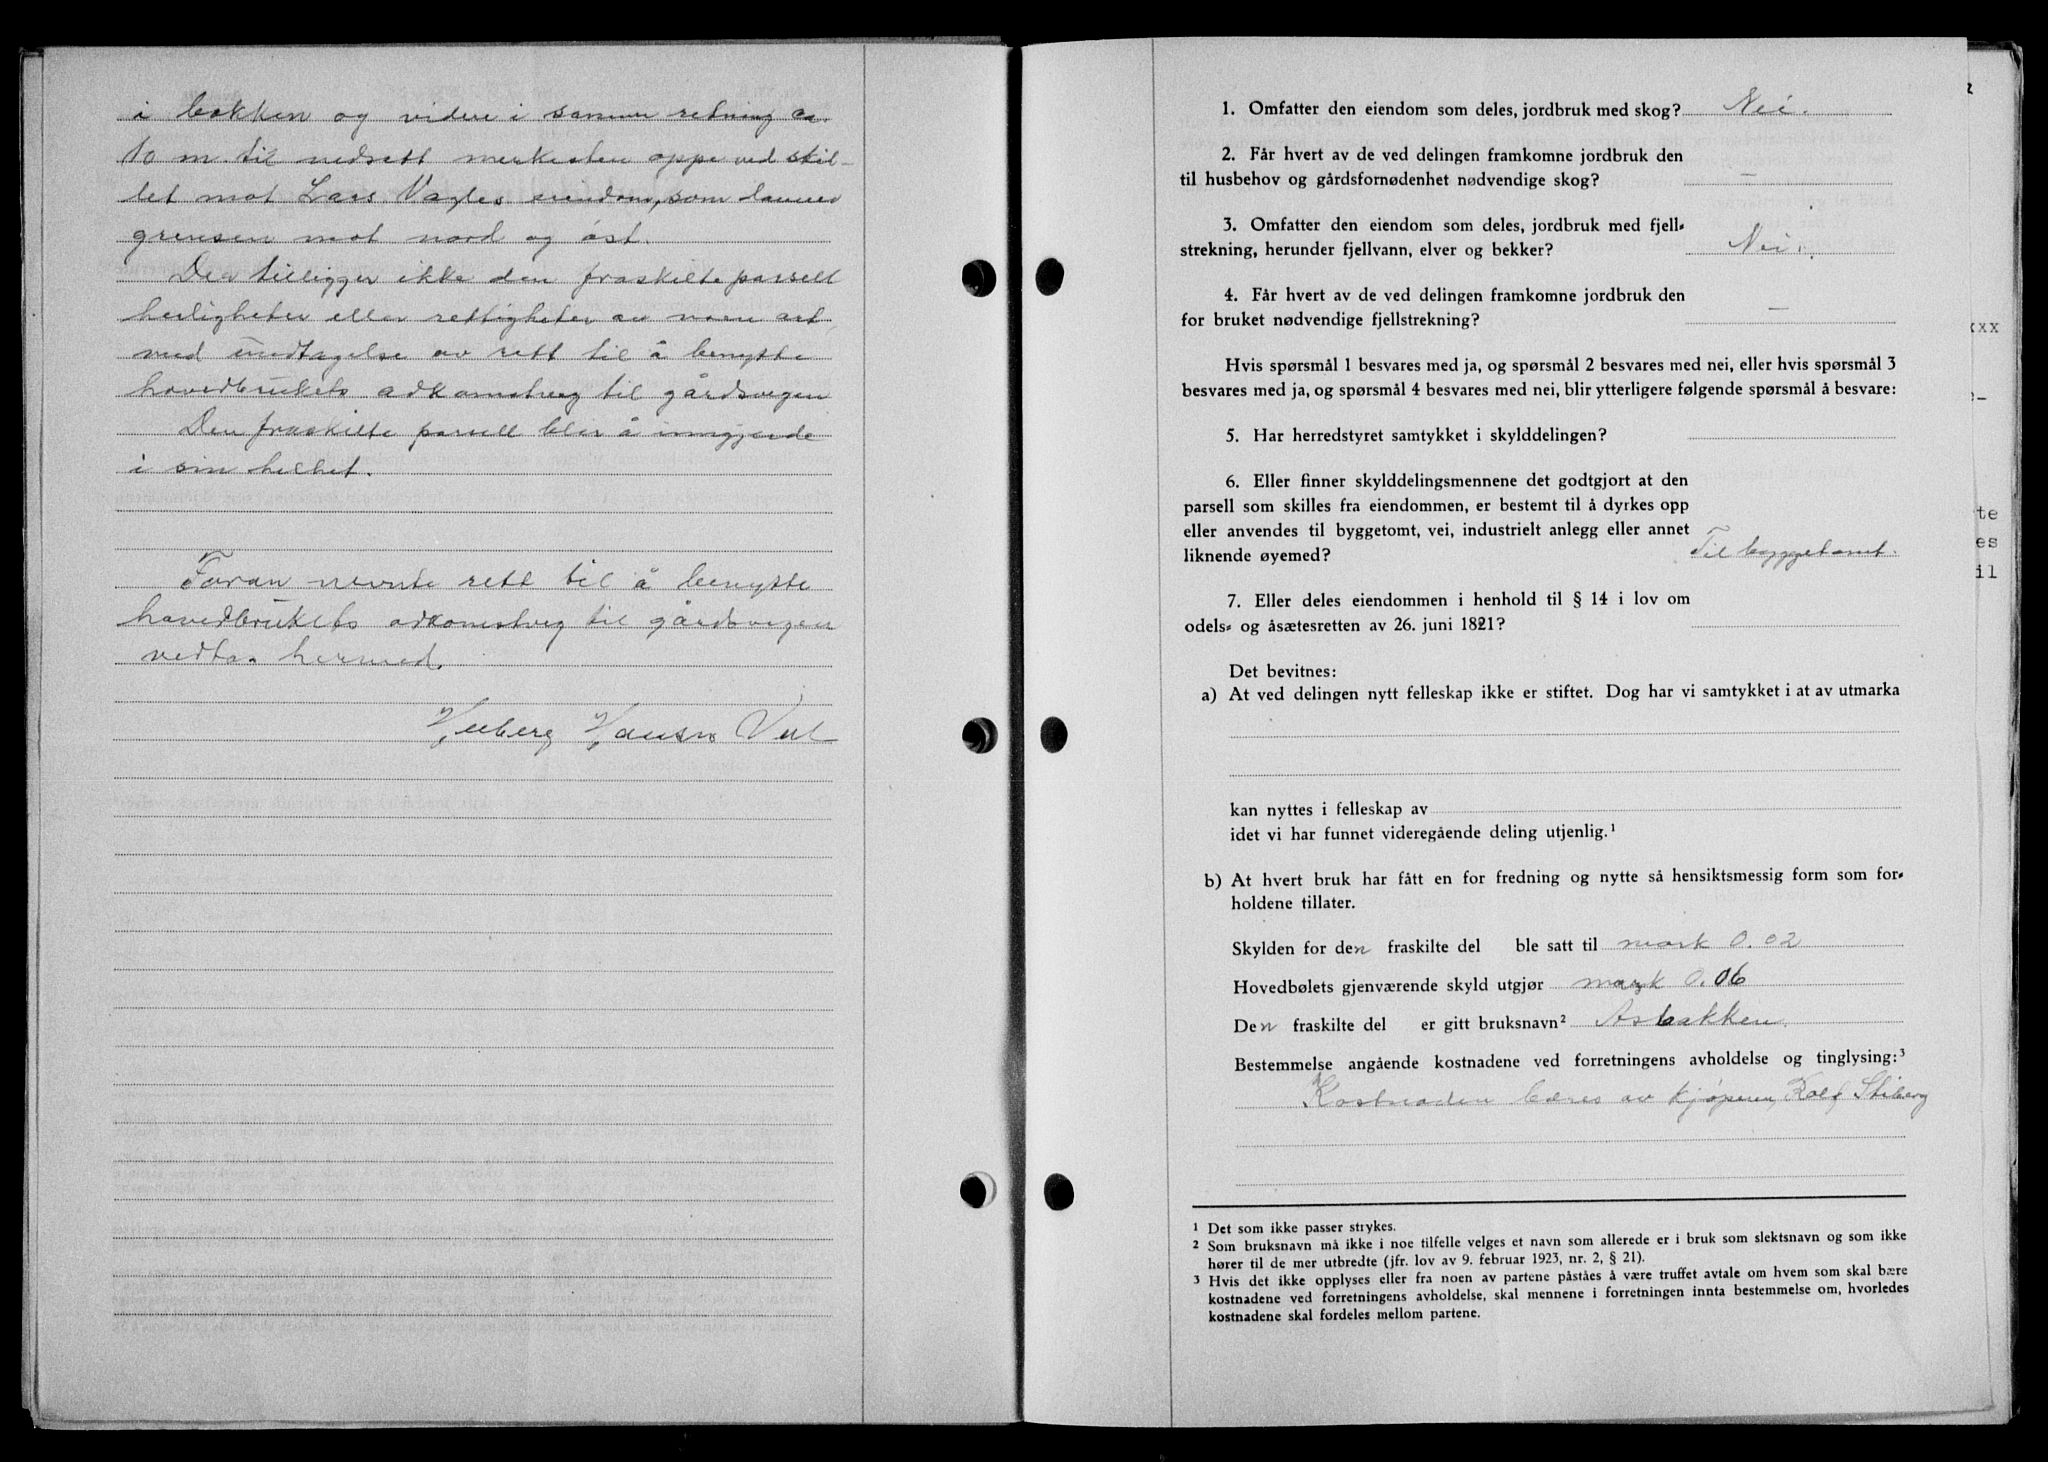 i bakken og videre i samme retning ca.
10 m til nedsett merkesten oppe ved skil-
let mot Lars Vagles eiendom, som danner
grensen mot nord og øst.
Der tilligger ikke den fraskilte parsell
herligheter eller rettigheter av noen art,
med undtagelse av rett til å benytte
hovedbrukets adkomstveg til gårdsvegen
Den fraskilte parsell blir å inngjerde
i sin helhet.
Foran nevnte rett til å benytte
hovedbrukets adkomstveg til gårdsvegen
vedtas hermed.
Hansen
1. Omfatter den eiendom som deles, jordbruk med skog? Nei.
2. Får hvert av de ved delingen framkomne jordbruk den
til husbehov og gårdsfornødenhet nødvendige skog? —
3. Omfatter den eiendom som deles, jordbruk med fjell-
strekning, herunder fjellvann, elver og bekker? Nei.
4. Får hvert av de ved delingen framkomne jordbruk den
for bruket nødvendige fjellstrekning? —
Hvis spørsmål 1 besvares med ja, og spørsmål 2 besvares med nei, eller hvis spørsmål 3
besvares med ja, og spørsmål 4 besvares med nei, blir ytterligere følgende spørsmål å besvare:
5. Har herredstyret samtykket i skylddelingen?
6. Eller finner skylddelingsmennene det godtgjort at den
parsell som skilles fra eiendommen, er bestemt til å dyrkes opp
eller anvendes til byggetomt, vei, industrielt anlegg eller annet
liknende øyemed? Til byggetomt.
7. Eller deles eiendommen i henhold til § 14 i lov om
odels- og åsætesretten av 26. juni 1821?
Det bevitnes:
a) At ved delingen nytt felleskap ikke er stiftet. Dog har vi samtykket i at av utmarka
kan nyttes i felleskap av
idet vi har funnet videregående deling utjenlig.¹
b) At hvert bruk har fått en for fredning og nytte så hensiktsmessig form som for-
holdene tillater.
Skylden for den fraskilte del ble satt til mark 0.02
Hovedbølets gjenværende skyld utgjør mark 0.06
Den fraskilte del er gitt bruksnavn² Asbakken.
Bestemmelse angående kostnadene ved forretningens avholdelse og tinglysing:³
Kostnaden bæres av kjøperen, Rolf Stiberg
¹ Det som ikke passer strykes.
² Som bruksnavn må ikke i noe tilfelle velges et navn som allerede er i bruk som slektsnavn og som ikke
hører til de mer utbredte (jfr. lov av 9. februar 1923, nr. 2, § 21).
³ Hvis det ikke opplyses eller fra noen av partene påståes å være truffet avtale om hvem som skal bære
kostnadene ved forretningens avholdelse, skal mennene i forretningen innta bestemmelse om, hvorledes
kostnadene skal fordeles mellom partene.
xxx
te
es
il